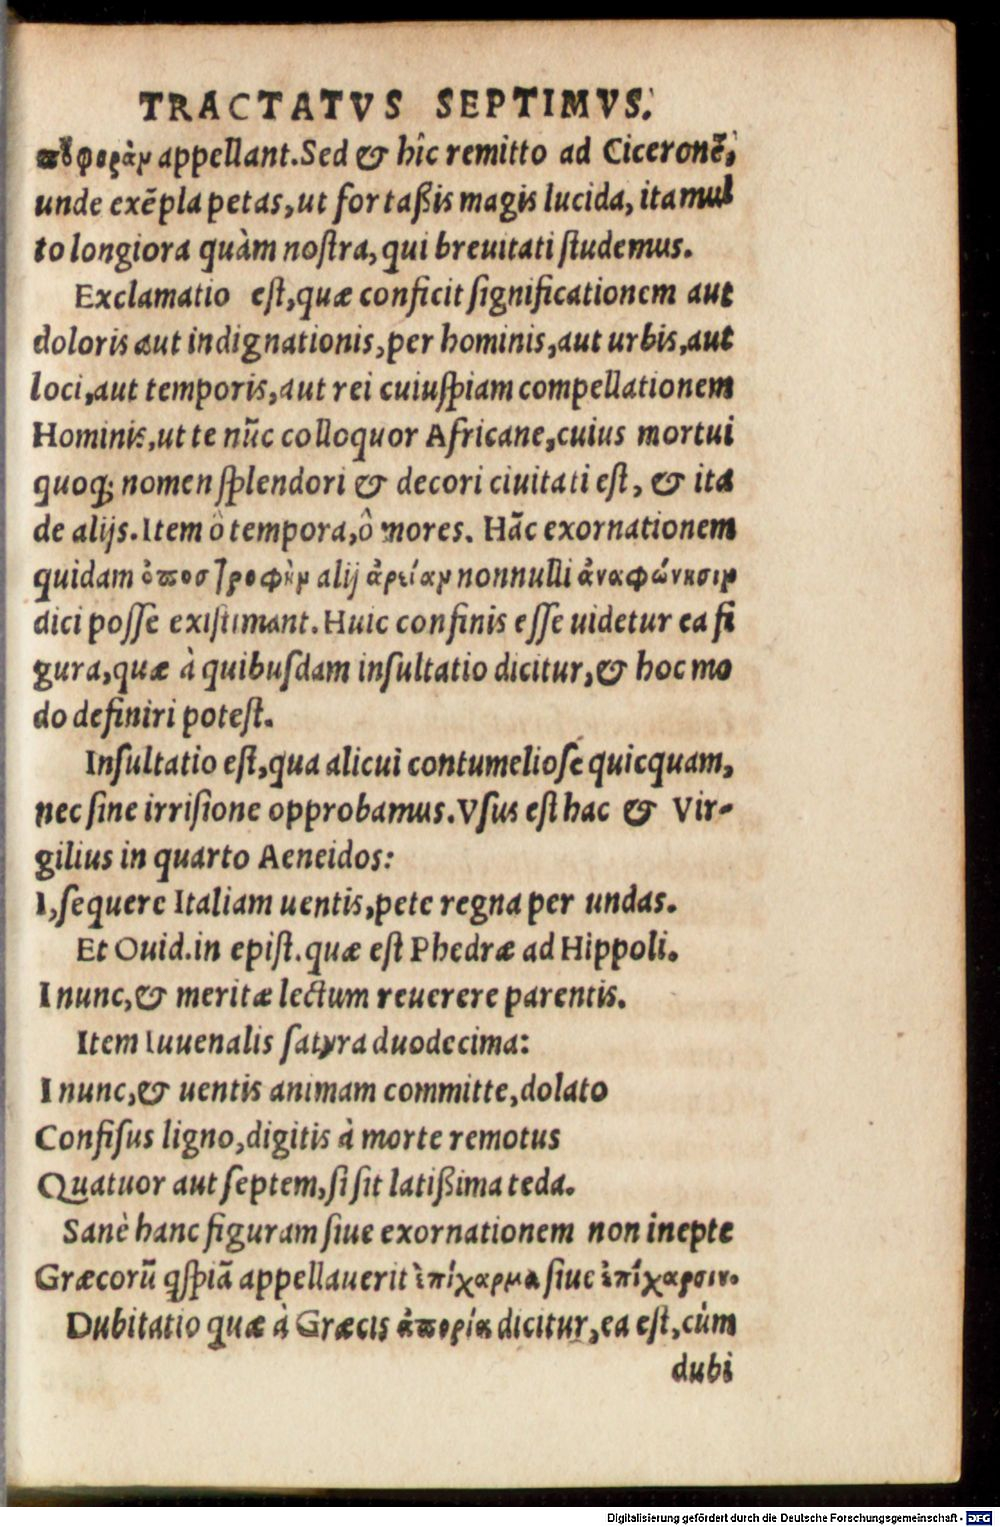 TRACTATVS SEPTIMVS.
appellant. Sed & hîc remitto ad Ciceronē,
unde exēpla petas, ut fortaßis magis lucida, ita mul
to longiora quàm nostra, qui breuitati studemus.
Exclamatio est, quæ conficit significationem aut
doloris aut indignationis, per hominis, aut urbis, aut
loci, aut temporis, aut rei cuiuspiam compellationem
Hominis, ut te nūc colloquor Africane, cuius mortui
quoq; nomen splendori & decori ciuitati est, & ita
de alijs. Item ô tempora, ô mores. Hāc exornationem
quidam alij nonnulli ἀναφώνησιν
dici posse existimant. Huic confinis esse uidetur ea fi
gura, quæ à quibusdam insultatio dicitur, & hoc mo
do definiri potest.
Insultatio est, qua alicui contumeliosè quicquam,
nec sine irrisione opprobamus. Vsus est hac & Vir-
gilius in quarto Aeneidos:
I, sequere Italiam uentis, pete regna per undas.
Et Ouid. in epist. quæ est Phedræ ad Hippoli.
I nunc, & meritæ lectum reuerere parentis.
Item Iuuenalis satyra duodecima:
I nunc, & uentis animam committe, dolato
Confisus ligno, digitis à morte remotus
Quatuor aut septem, si sit latißima teda.
Sanè hanc figuram siue exornationem non inepte
Græcorū qspiā appellauerit ἐπίχαρμα siue ἐπίχαρσιν.
Dubitatio quæ à Græcis ἀπορία dicitur, ea est, cùm
dubi
Digitalisierung gefördert durch die Deutsche Forschungsgemeinschaft - DFG